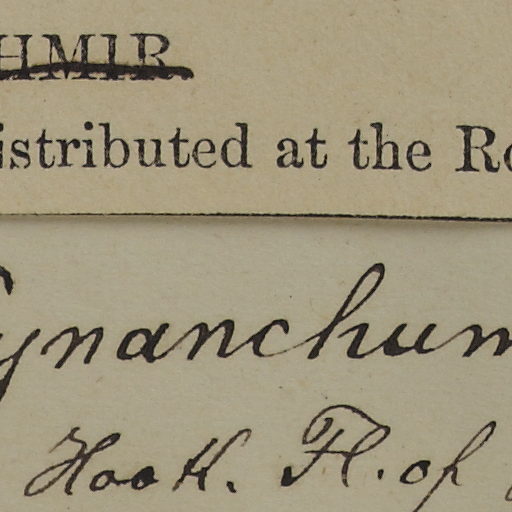 HMIR
istributed at the Ro
Cynanchum
Hook. Fl. of